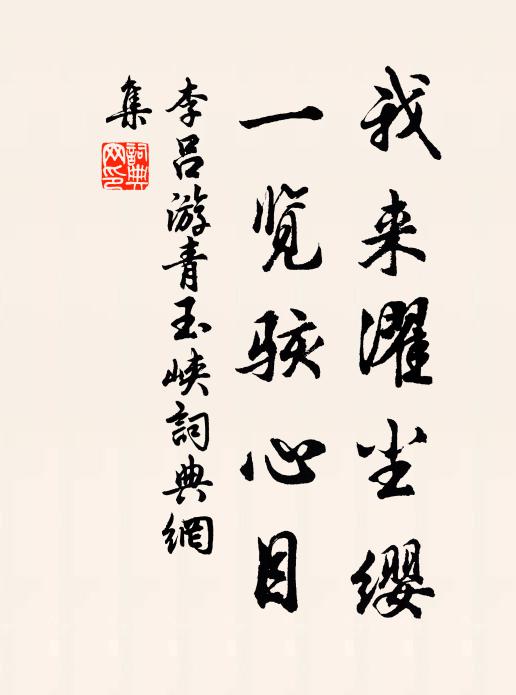 我来濯尘缨
一览骇心目
李吕游青玉峡词典網
集
詞典
网印